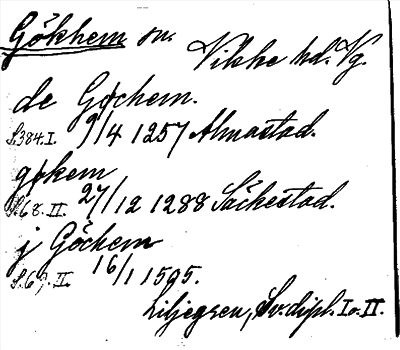 Gökhem sn. Vilske hd. Vg.
de Gøchem.
S. 384. I. 9/4 1257 Almastad.
gøkem
S. 68. II. 27/12 1288 Säckestad.
j Göchem
S. 69. II. 16/1 1505.
Liljegren, Sv. dipl. I o. II.